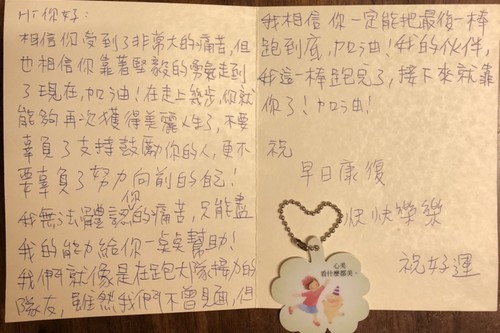 Hi 你好:
相信你受到了非常大的痛苦,但
也相信你靠著堅毅的勇氣走到
了現在,加油!在走上幾步,你就
能夠再次獲得美麗人生了,不要
辜負了支持鼓勵你的人,更不
要辜負了努力向前的自己!
我無法體認你的痛苦,只能盡
我的能力給你一點點幫助!
我們就像是在跑大隊接力的
隊友,雖然我們不曾見面,但
我相信你一定能把最後一棒
跑到底,加油!我的伙伴,
我這一棒跑完了,接下來就靠
你了!加油!
祝
早日康復
快快樂樂
祝好運
心美
看什麼都美。